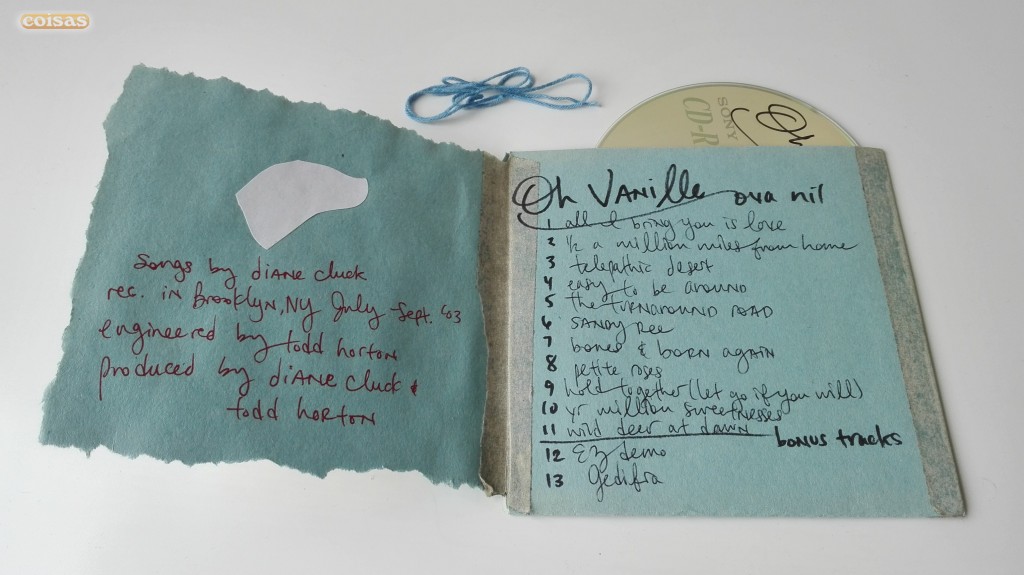 coisas
Songs by diane cluck
rec. in Brooklyn, NY July - Sept. '03
engineered by todd horton
produced by diane cluck &
todd horton
SONY
CD-R
Oh
Oh Vanille ova nil
1 all I bring you is love
2 1/2 a million miles from home
3 telepathic desert
4 easy to be around
5 the turnaround road
6 sandy ree
7 bones & born again
8 petite roses
9 hold together (let go if you will)
10 yr million sweetnesses
11 wild deer at dawn
bonus tracks
12 EZ demo
13 Gedifra